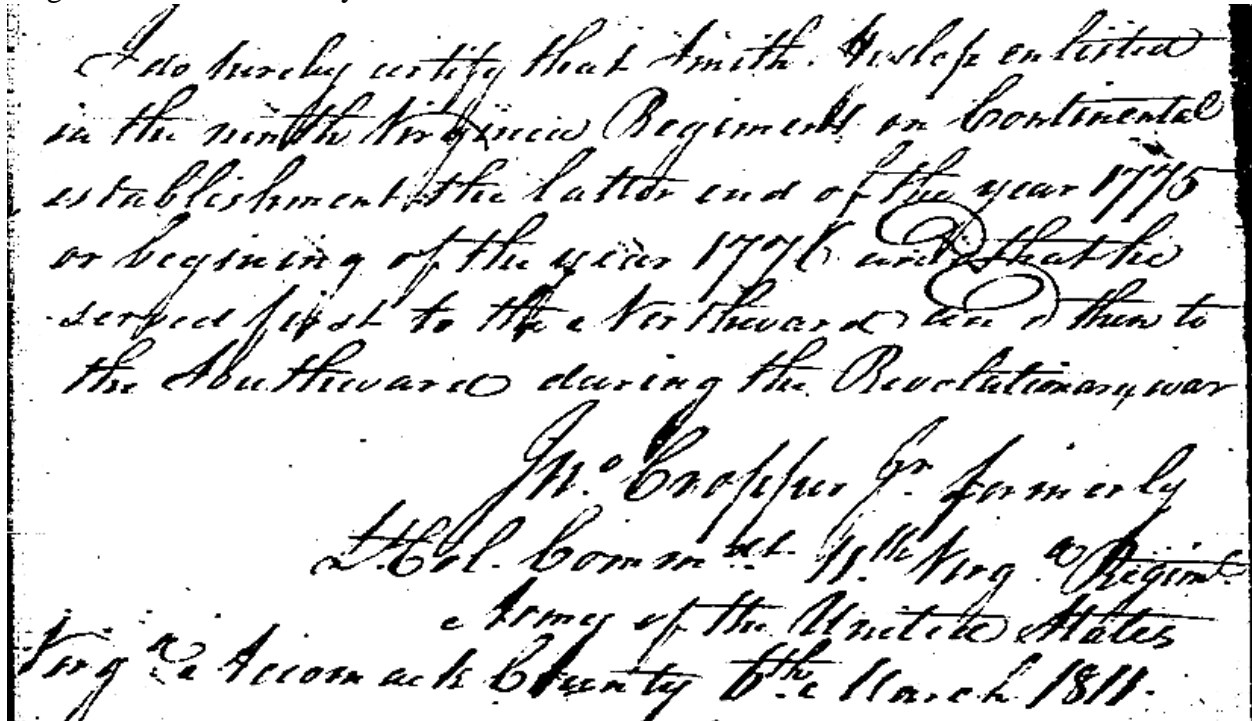 I do hereby certify that Smith Heslop enlisted
in the ninth Virginia Regiment on Continental
establishment the latter end of the year 1775
or begining of the year 1776 and that he
served first to the Northward and then to
the Southward during the Revolutionary war
Jno. Cropper Jr. formerly
Lt. Col. Commdt. 11th Virga. Regimt.
Army of the United States
Virga. Accomack County 6th March 1811.